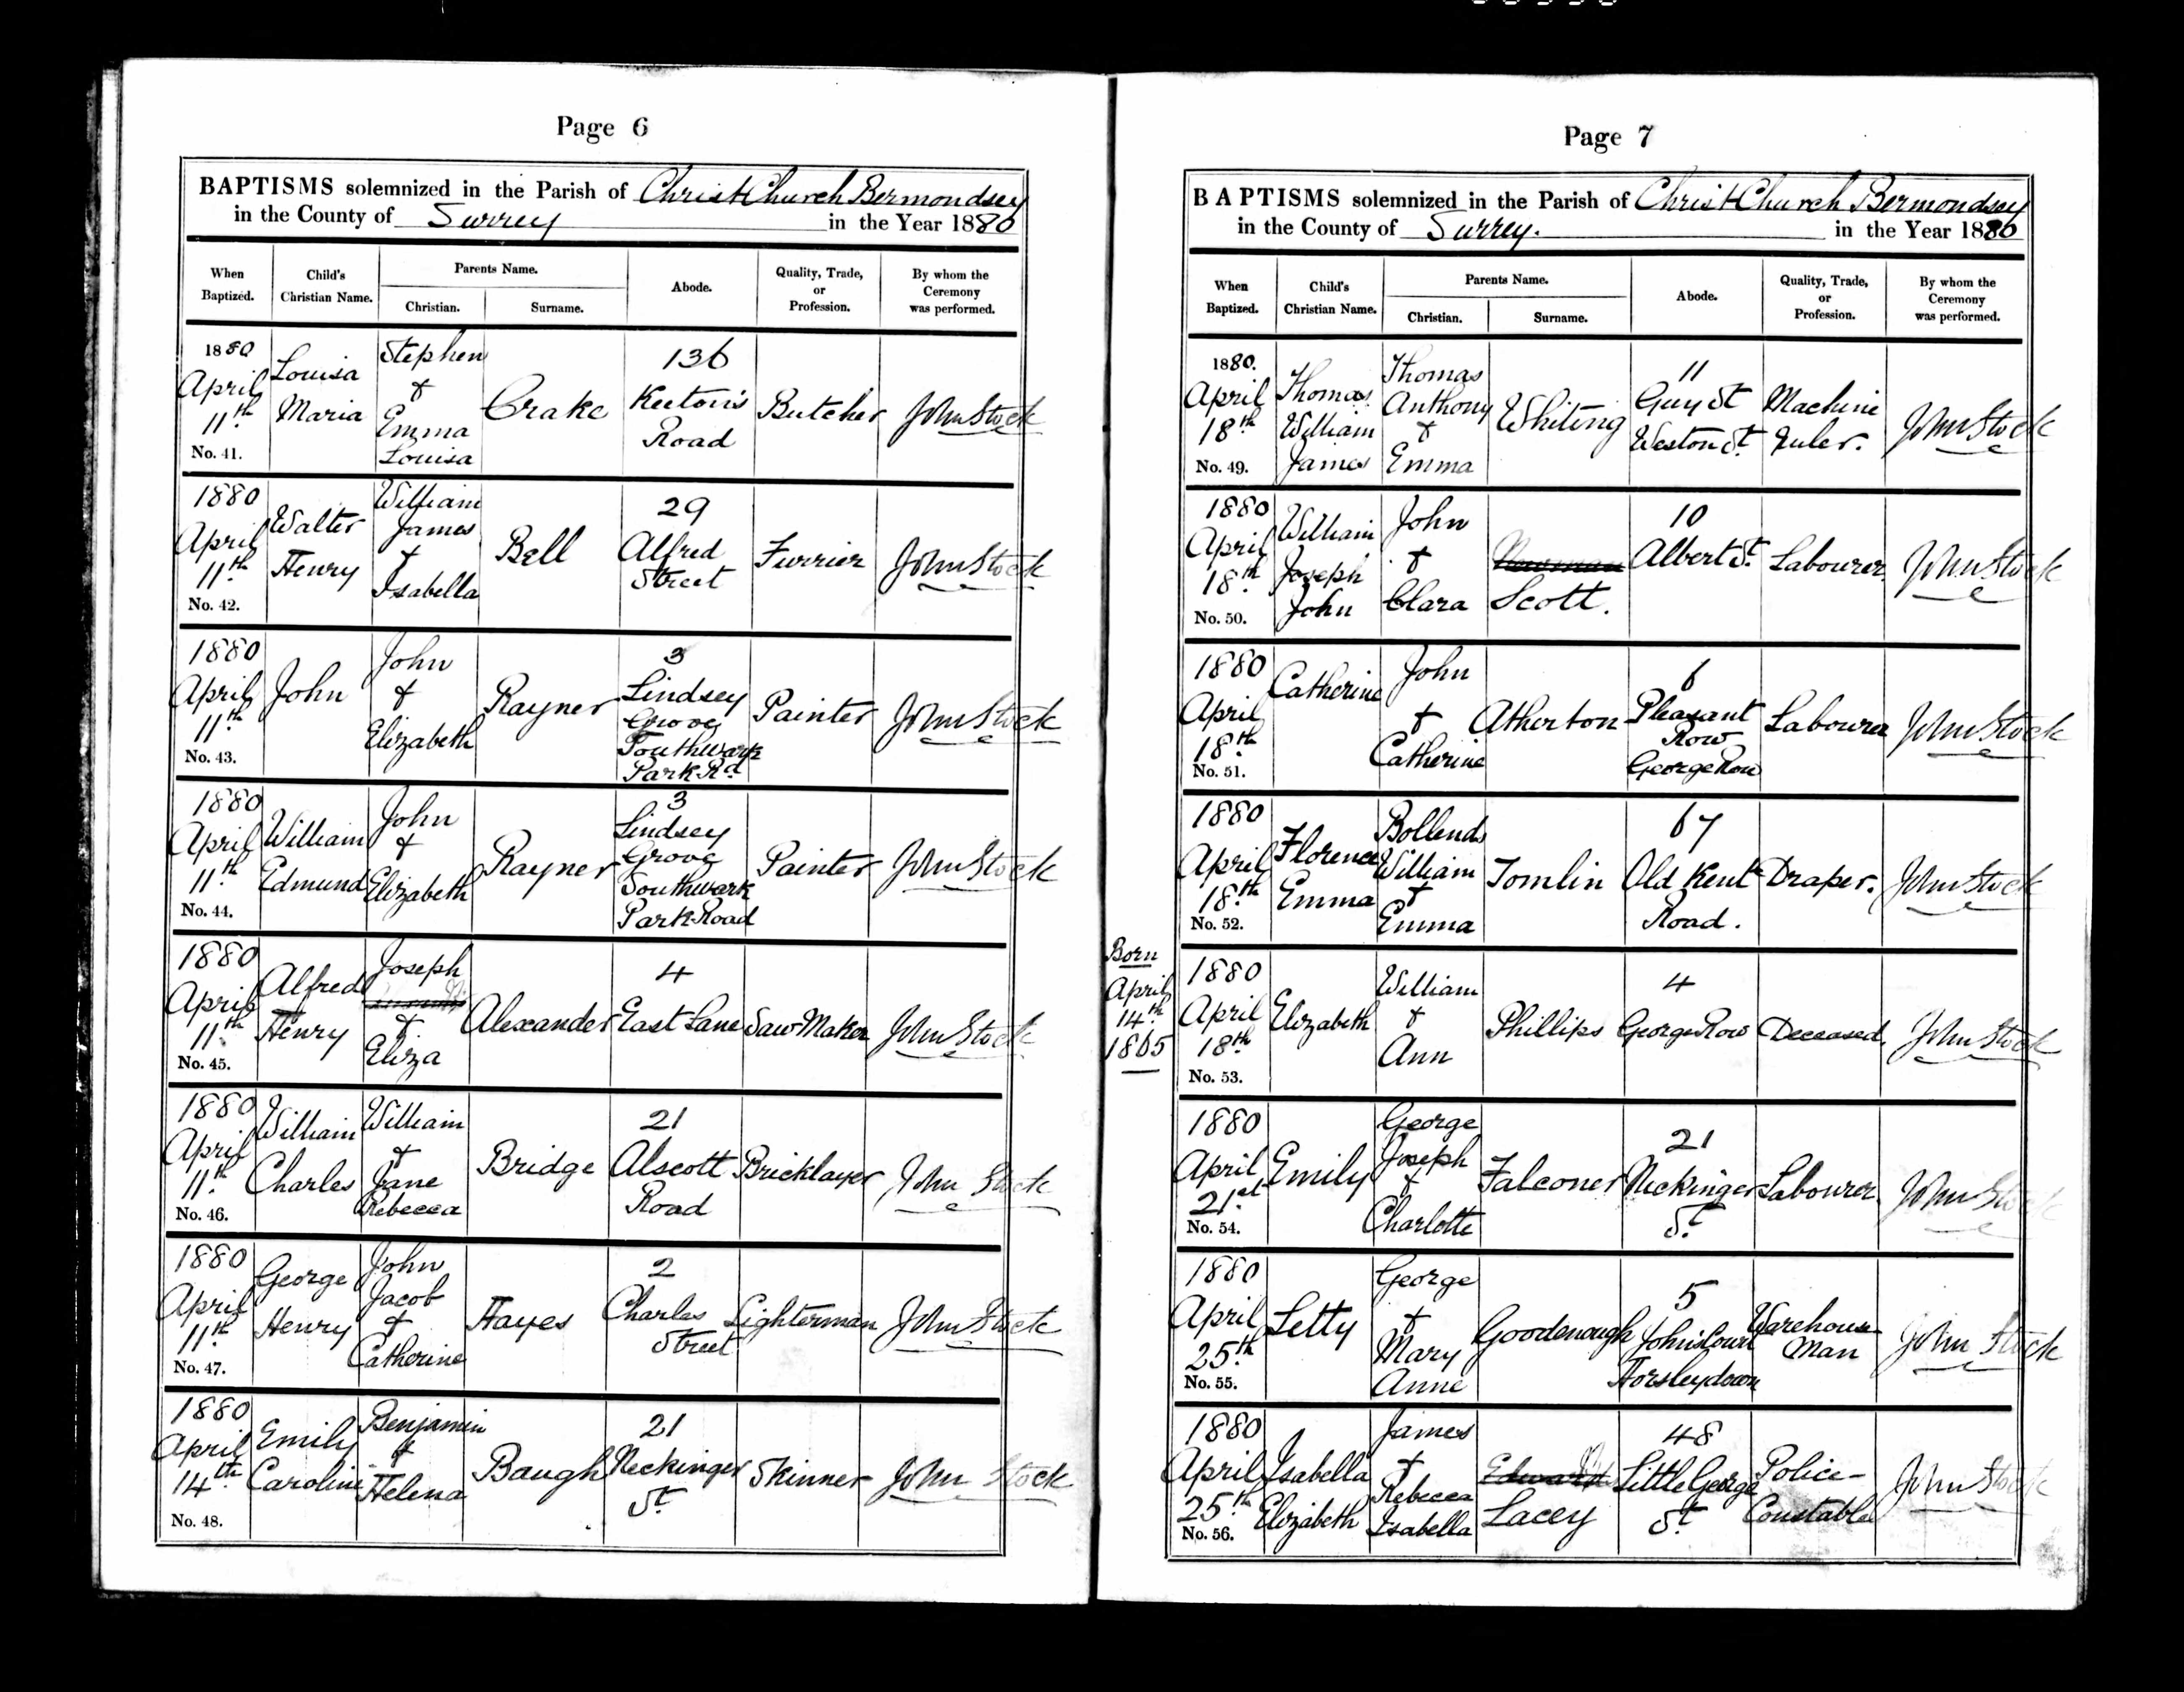 Page 6
BAPTISMS solemnized in the Parish of Christ Church Bermondsey
in the County of Surrey in the Year 1880
When Baptized. Child's Christian Name. Parents Name. Christian. Surname. Abode. Quality, Trade, or Profession. By whom the Ceremony was performed.
1880 April 11th No. 41. Louisa Maria Stephen & Emma Louisa Crake 136 Keeton's Road Butcher John Stock
1880 April 11th No. 42. Walter Henry William James & Isabella Bell 29 Alfred Street Furrier John Stock
1880 April 11th No. 43. John John & Elizabeth Rayner 3 Lindsey Grove Southwark Park Rd Painter John Stock
1880 April 11th No. 44. William Edmund John & Elizabeth Rayner 3 Lindsey Grove Southwark Park Road Painter John Stock
1880 April 11th No. 45. Alfred Henry Joseph & Eliza Alexander 4 East Lane Saw Maker John Stock
1880 April 11th No. 46. William Charles William & Jane Rebecca Bridge 21 Alscott Road Bricklayer John Stock
1880 April 11th No. 47. George Henry John Jacob & Catherine Hayes 2 Charles Street Lighterman John Stock
1880 April 14th No. 48. Emily Caroline Benjamin & Helena Baugh 21 Neckinger St. Skinner John Stock
Page 7
BAPTISMS solemnized in the Parish of Christ Church Bermondsey
in the County of Surrey. in the Year 1880
When Baptized. Child's Christian Name. Parents Name. Christian. Surname. Abode. Quality, Trade, or Profession. By whom the Ceremony was performed.
1880. April 18th No. 49. Thomas William James Thomas Anthony & Emma Whiting 11 Guy St Weston St. Machine Ruler. John Stock
1880 April 18th No. 50. William Joseph John John & Clara Newman Scott. 10 Albert St. Labourer John Stock
1880 April 18th No. 51. Catherine John & Catherine Atherton 6 Pleasant Row George Row Labourer John Stock
1880 April 18th No. 52. Florence Emma Bollends William & Emma Tomlin 67 Old Kent Road. Draper. John Stock
Born April 14th 1865
1880 April 18th No. 53. Elizabeth William & Ann Phillips 4 George Row Deceased. John Stock
1880 April 21st No. 54. Emily George Joseph & Charlotte Falconer 21 Neckinger St. Labourer. John Stock
1880 April 25th No. 55. Letty George & Mary Anne Goodenough 5 John's Court Horsleydown Warehouse Man John Stock
1880 April 25th No. 56. Isabella Elizabeth James & Rebecca Isabella Edward Lacey 48 Little George St. Police-Constable John Stock